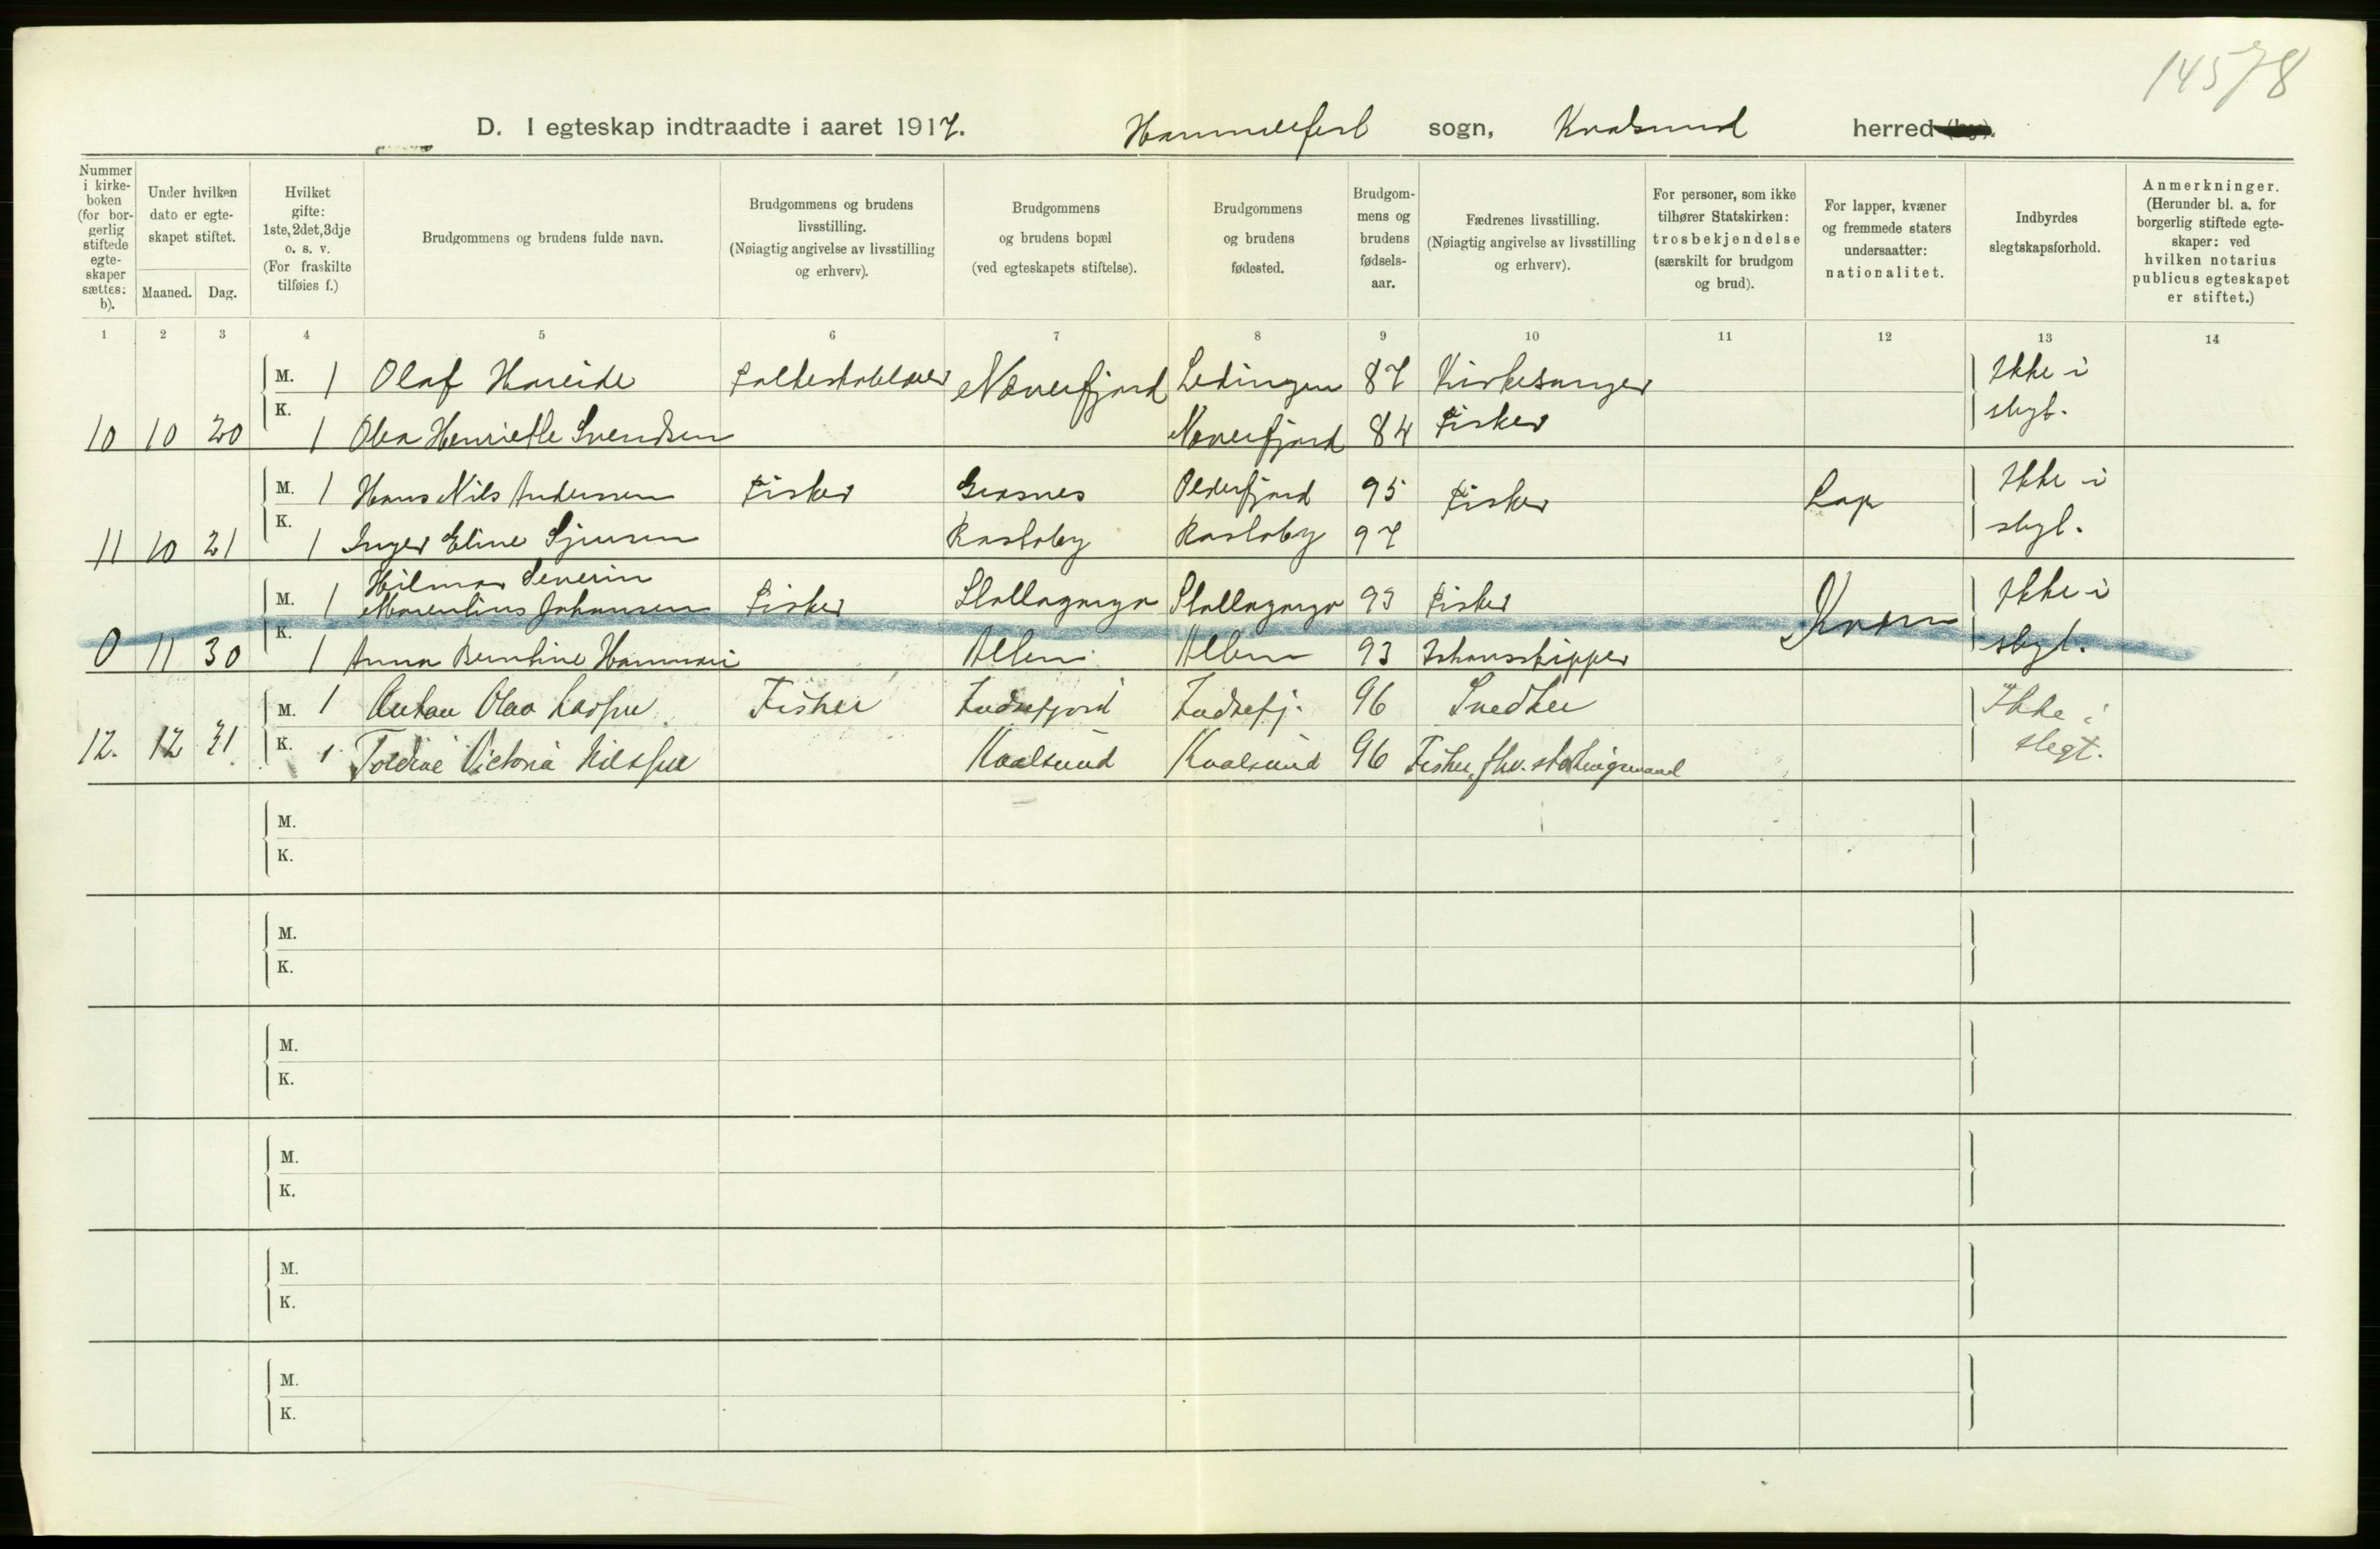 14578
D. I egteskap indtraadte i aaret 1917. Hammerfest sogn, Kvalsund herred (by).
Nummer i kirkeboken (for borgerlig stiftede egteskaper sættes: b).
Under hvilken dato er egteskapet stiftet.
Maaned. Dag.
Hvilket gifte: 1ste, 2det, 3dje o. s. v. (For fraskilte tilføies f.)
Brudgommens og brudens fulde navn.
Brudgommens og brudens livsstilling. (Nøiagtig angivelse av livsstilling og erhverv).
Brudgommens og brudens bopæl (ved egteskapets stiftelse).
Brudgommens og brudens fødested.
Brudgommens og brudens fødselsaar.
Fædrenes livsstilling. (Nøiagtig angivelse av livsstilling og erhverv).
For personer, som ikke tilhører Statskirken: trosbekjendelse (særskilt for brudgom og brud).
For lapper, kvæner og fremmede staters undersaatter: nationalitet.
Indbyrdes slegtskapsforhold.
Anmerkninger. (Herunder bl. a. for borgerlig stiftede egteskaper: ved hvilken notarius publicus egteskapet er stiftet.)
1 2 3 4 5 6 7 8 9 10 11 12 13 14
M. 1 Olaf Hareide Næverfjord Lødingen 87 Kirkesanger Ikke i
10 10 20 K. 1 Olea Henriette Svendsen Næverfjord 84 Fisker slegt.
M. 1 Hans Nils Andersen Fisker Grasnes Olderfjord 95 Fisker Lap Ikke i
11 10 21 K. 1 Inger Eline Sjursen Rastaby Rastaby 97 slegt.
Hilmar Severin
M. 1 Marentius Johansen Fisker Stallogargo Stallogargo 93 Fisker Kvæn Ikke i
0 11 30 K. 1 Anna Berntine Hammari 93 Ishavsskipper slegt.
M. 1 Anton Olav Fisker Indrefjord Indrefj. 96 Snedker Ikke i
12. 12 31 K. 1 Toldine Victoria Nilssen Kvalsund Kvalsund 96 Fisker, fhv. stortingsmand slegt.
M.
K.
M.
K.
M.
K.
M.
K.
M.
K.
M.
K.